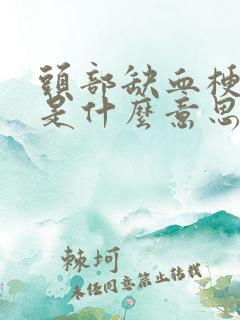 頭部缺血梗
是什麼意思
棘坷
未经同意禁止转载